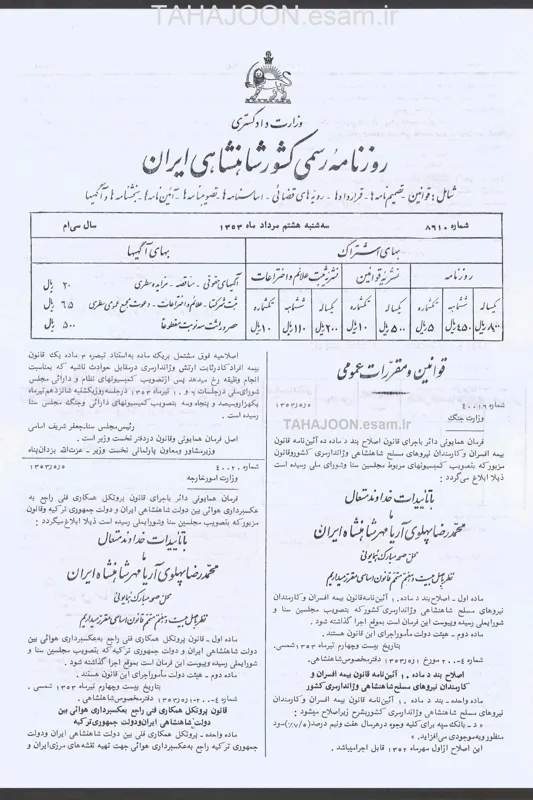 TAHAJOON.esam.ir
وزارت دادگستری
روزنامه رسمی کشور شاهنشاهی ایران
شامل: قوانین - تصمیم نامه‌ها - قراردادها - رویه‌های قضائی - اساسنامه‌ها - تصویبنامه‌ها - آئین‌نامه‌ها - بخشنامه‌ها و آگهیها
شماره ۸۶۱۰
سه‌شنبه هشتم مرداد ماه ۱۳۵۳
سال سی‌ام
بهای اشتراک
بهای آگهیها
روزنامه
نشریه قوانین
نشریه ثبت علائم و اختراعات
یکساله
ششماهه
تکشماره
یکساله
تکشماره
یکساله
ششماهه
تکشماره
۸۰۰ ریال
۴۵۰ ریال
۵ ریال
۵۰۰ ریال
۱۰ ریال
۲۰۰ ریال
۱۱۰ ریال
۱۰ ریال
آگهیهای حقوقی - مناقصه - مزایده سطری ۲۰ ریال
ثبت شرکتها - علائم و اختراعات - دعوت مجمع عمومی سطری ۶/۵ ریال
حصر وراثت سه نوبت مقطوعا ۵۰۰ ریال
قوانین و مقررات عمومی
شماره ۴۰۰۱۶
۱۳۵۳ر۵ر۵
وزارت جنگ
فرمان همایونی دائر باجرای قانون اصلاح بند د ماده ده آئین‌نامه قانون
بیمه افسران و کارمندان نیروهای مسلح شاهنشاهی وژاندارمری کشور وقانون
مزبور که بتصویب کمیسیونهای مربوط مجلسین سنا وشورای ملی رسیده است
ذیلا ابلاغ میگردد:
با تأییدات خداوند متعال
ما
محمدرضا پهلوی آریامهر شاهنشاه ایران
محل صحه مبارک همایونی
نظر باصل بیست و هفتم متمم قانون اساسی مقرر میداریم
ماده اول - اصلاح بند د ماده ۱۰ آئین‌نامه قانون بیمه افسران و کارمندان
نیروهای مسلح شاهنشاهی وژاندارمری کشور که بتصویب مجلسین سنا و
شورایملی رسیده وپیوست این فرمان است بموقع اجرا گذاشته شود.
ماده دوم - هیئت دولت مأمور اجرای این قانون هستند.
بتاریخ بیست وچهارم تیرماه ۱۳۵۳ شمسی
اصلاح بند د ماده ۱۰ آئین‌نامه قانون بیمه افسران و
کارمندان نیروهای مسلح شاهنشاهی وژاندارمری کشور
ماده واحده - بند د ماده ۱۰ آئین‌نامه قانون بیمه افسران و کارمندان
نیروهای مسلح شاهنشاهی وژاندارمری کشور بشرح زیر اصلاح میشود:
« د - بانک سپه برای کلیه وجوه در هر سال هفت ونیم درصد (۷/۵٪) سود
منظور وبه موجودی می‌افزاید.»
این اصلاح از اول مهرماه ۱۳۵۲ قابل اجرا میباشد.
اصلاحیه فوق مشتمل بریک ماده به‌استناد تبصره ۳ ماده یک قانون
بیمه افراد کادر ثابت ارتش وژاندارمری در مقابل حوادث ناشیه که بمناسبت
انجام وظیفه رخ میدهد پس از تصویب کمیسیونهای نظام و دارائی مجلس
شورای ملی در جلسات ۶ و ۱۰ تیرماه ۱۳۵۳ در جلسه روز یکشنبه شانزدهم تیرماه
یکهزار وسیصد و پنجاه وسه بتصویب کمیسیونهای دارائی وجنگ مجلس سنا
رسیده است.
رئیس مجلس سنا - جعفر شریف امامی
اصل فرمان همایونی وقانون در دفتر نخست وزیر است.
وزیر مشاور ومعاون پارلمانی نخست وزیر - عزت‌الله یزدان‌پناه
شماره ۴۰۰۲۰
۱۳۵۳ر۵ر۵
وزارت امور خارجه
فرمان همایونی دائر باجرای قانون پروتکل همکاری فنی راجع به
عکسبرداری هوائی بین دولت شاهنشاهی ایران و دولت جمهوری ترکیه وقانون
مزبور که بتصویب مجلسین سنا وشورایملی رسیده است ذیلا ابلاغ میگردد:
با تأییدات خداوند متعال
ما
محمدرضا پهلوی آریامهر شاهنشاه ایران
محل صحه مبارک همایونی
نظر باصل بیست و هفتم متمم قانون اساسی مقرر میداریم
ماده اول - قانون پروتکل همکاری فنی راجع به‌عکسبرداری هوائی بین
دولت شاهنشاهی ایران و دولت جمهوری ترکیه که بتصویب مجلسین سنا و
شورایملی رسیده وپیوست این فرمان است بموقع اجرا گذاشته شود.
ماده دوم - هیئت دولت مأمور اجرای این قانون هستند.
بتاریخ بیست وچهارم تیرماه ۱۳۵۳ شمسی.
قانون پروتکل همکاری فنی راجع بعکسبرداری هوائی بین
دولت شاهنشاهی ایران ودولت جمهوری ترکیه
ماده واحده - پروتکل همکاری فنی بین دولت شاهنشاهی ایران ودولت
جمهوری ترکیه راجع به‌عکسبرداری هوائی جهت تهیه نقشه‌های مرزی ایران و
TAHAJOON.esam.ir